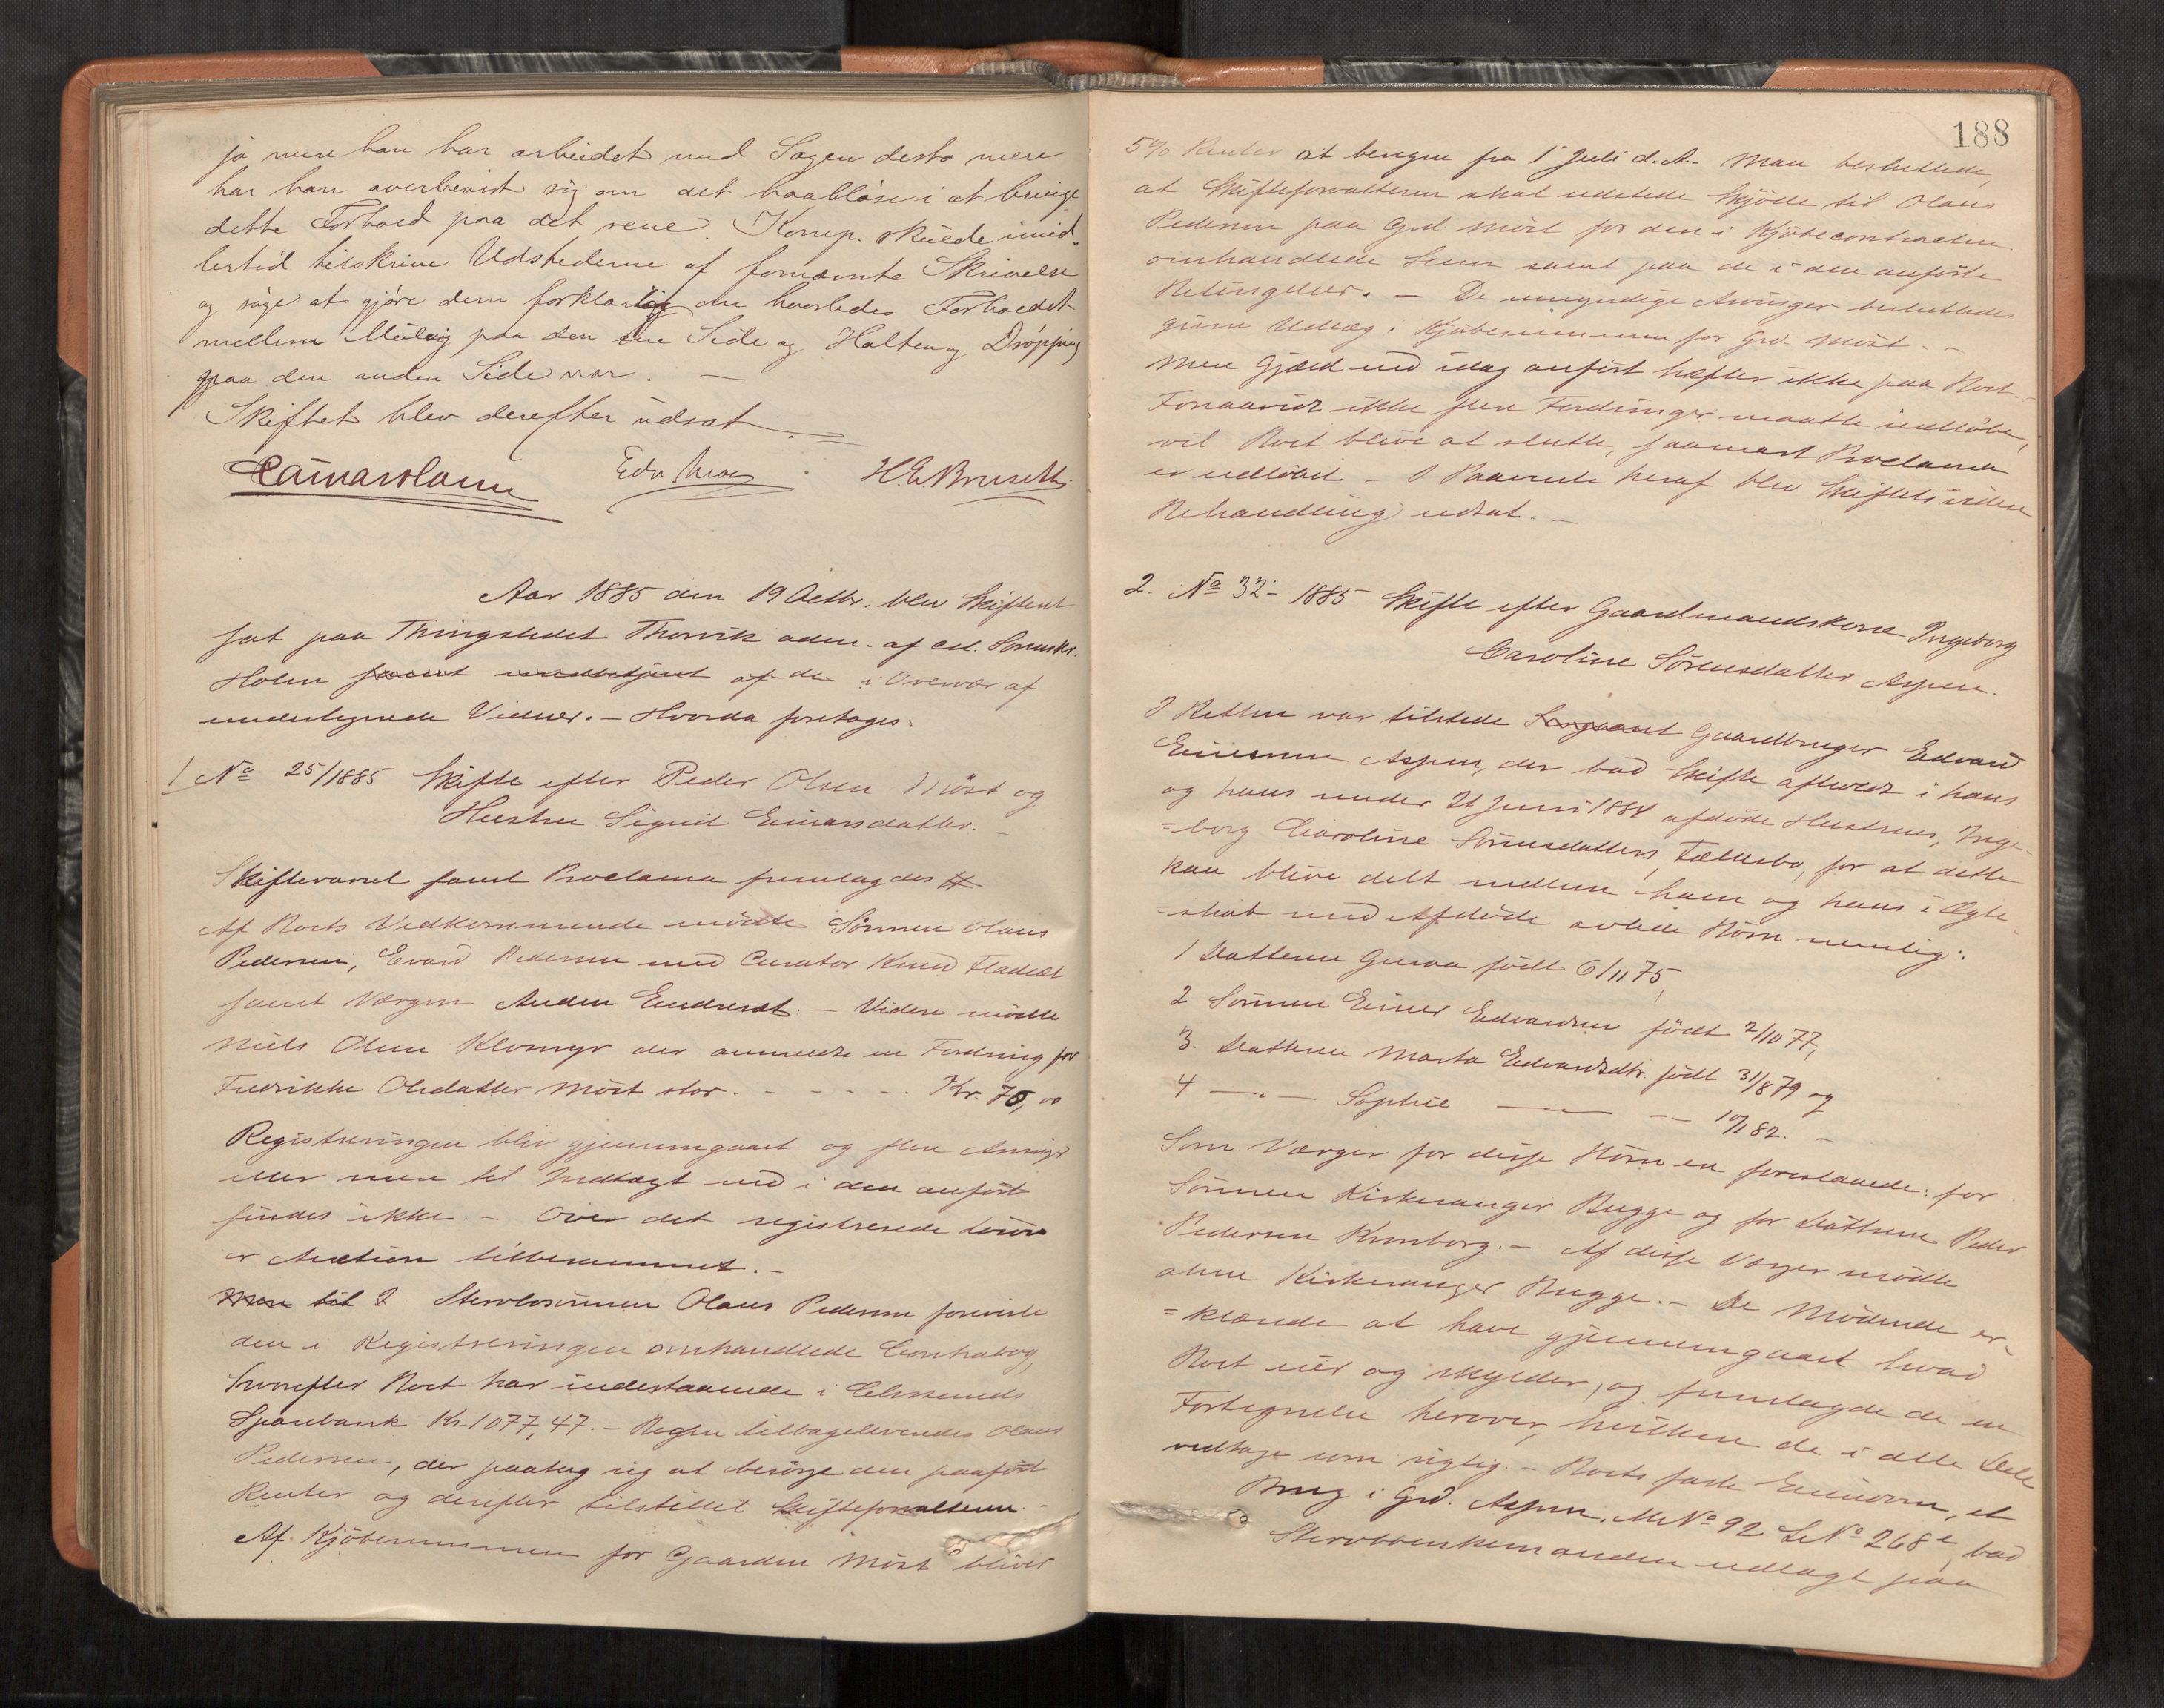 jo mere han har arbeidet med Sagen desto mere
har han overbevist sig om det haabløse i at bringe
dette Forhold paa det rene. Komp. skulde imid-
lertid tilskrive Udstederne af fornævnte Skrivelse
og søge at gjøre dem forklarlig om hvorledes Forholdet
mellem paa den ene Side og Holten og
paa den anden Side var. —
Skiftet blev derefter udsat.
Edv H.E. Brusett
Aar 1885 den 19 Octbr. blev Skifteret
sat paa Thingstedet Thorvik adm. af cst. Sorenskr.
Holm samt af de i Overvær af
undertegnede Vidner. — Hvorda foretoges:
1 No 25/1885 Skifte efter Peder Olsen Möst og
Hustru Sigrid Einarsdatter. —
Skiftevarsel samt Proclama fremlagdes #
Af Boets Vedkommende mödte Sönnen Olaus
Pedersen, Evard Pedersen med Curator Knud Fladsæt
samt Værgen Anders Endresæt. — Videre mödte
Niels Olsen Klomyr der anmeldte en Fordring for
Fredrikke Olsdatter Möst stor. - - - - - Kr. 70,00
Registreringen blev gjennemgaaet og flere Arvinger
eller mere til Indtægt end i den anfört
findes ikke. — Over det registrerede Lösöre
er Auction tilberammet. —
Men til I Stervbosönnen Olaus Pedersen foreviste
den i Registreringen omhandlede Contrabog,
hvorefter Boet har indestaaende i
Sparebank Kr. 1077,47. — Bogen tilbageleveredes Olaus
Pedersen, der paatog sig at besörge den paafört
Renter og derefter tilstillet Skifteforvalteren. —
Af Kjöbesummen for Gaarden Möst bliver
188
5% Renter at beregne fra 1 Juli d.A. Man besluttede,
at Skifteforvalteren skal udstede Skjöde til Olaus
Pedersen paa Grd Möst for den i Kjöbecontracten
omhandlede Sum samt paa de i den anförte
Betingelser. — De umyndige Arvinger besluttedes
givne Udlæg i Kjöbesummen for Grd. Möst. —
Mere Gjæld end idag anfört hæfter ikke paa Boet. —
Forsaavidt ikke flere Fordringer maatte indlöbe,
vil Boet blive at slutte, saasnart Proclama
er udlöbet — I Paavente heraf blev Skiftets videre
Behandling udsat. —
2. No 32- 1885 Skifte efter Gaardmandskone Ingeborg
Caroline Sörensdatter Aspen.
I Retten var tilstede Gaardbruger Edvard
Einersen Aspen, der bad Skifte afholdt i hans
og hans under 21 Juni 1884 afdöde Hustrues, Inge-
=borg Caroline Sörensdatters, Fællesbo, for at dette
kan blive delt mellem ham og hans i Ægte
=skab med Afdöde avlede Börn nemlig:
1 Datteren Guroa födt 6/11 75,
2 Sönnen Einer Edvardsen födt 2/10 77,
3. Datteren Marta Edvardsdtr. födt 31/8 79 og
4 —"— Sophie —"— — 10/1 82. —
Som Værger for disse Börn ere foreslaaede: for
Sönnen Kirkesanger Bugge og for Döttrene Peder
Pedersen Kronborg. — Af disse Værger mödte
alene Kirkesanger Bugge. — De Mödende er-
=klærede at have gjennemgaaet hvad
Boet eier og skylder, og fremlagde de en
Fortegnelse herover, hvilken de i alle Dele
vedtoge som rigtig. — Boets faste Eiendom, et
Brug i Grd. Aspen, M No 92 L No 268e, bad
Stervboenkemanden udlagt paa